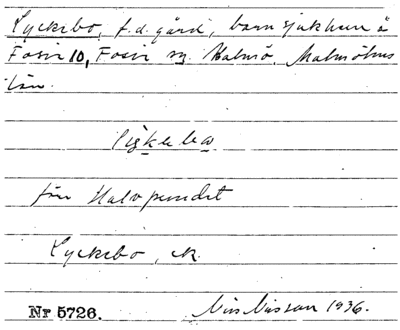 Lyckebo, f.d. gård, barnsjukhus å
Fosie 10, Fosie sn. Malmö, Malmöhus
län.
lyk
från Halvpundet
Lyckebo, ek.
Nr 5726.
Nils Nilsson 1936.